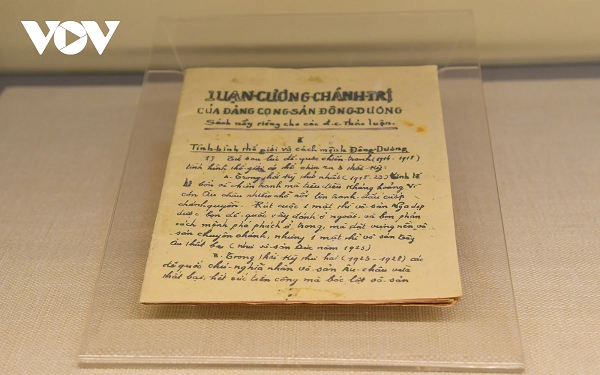 VOV
LUẬN-CƯƠNG-CHÁNH-TRỊ
CỦA ĐẢNG CỘNG-SẢN ĐÔNG-DƯƠNG
Sách nầy riêng cho các đ.c thảo luận.
I
Tình-hình thế giới và cách mệnh Đông-Dương
1) Từ sau lúc đế-quốc chiến tranh (1914-1918)
tình hình thế giới có thể chia ra 3 thời kỳ:
a. Trong thời kỳ thứ nhất (1918-23) kinh tế
bổn vì chiến tranh mà tiêu điều khủng hoảng vì
còn Âu châu nhiều chỗ nổi lên tranh đấu cướp
chánh quyền. Kết cuộc 1 mặt thì vô-sản Nga dẹp
được bọn đế-quốc vây đánh ở ngoài và bọn phản
cách mệnh phá phách ở trong, mà dựng vững nền vô
sản chuyên chánh, nhưng 1 mặt thì vô sản tây
Âu thất bại (như vô-sản Đức năm 1923)
b. Trong thời kỳ thứ hai (1923-1928) các
đế quốc chủ-nghĩa nhân vô-sản Âu-châu vừa
thất bại, hết sức tiến công mà bóc lột vô-sản